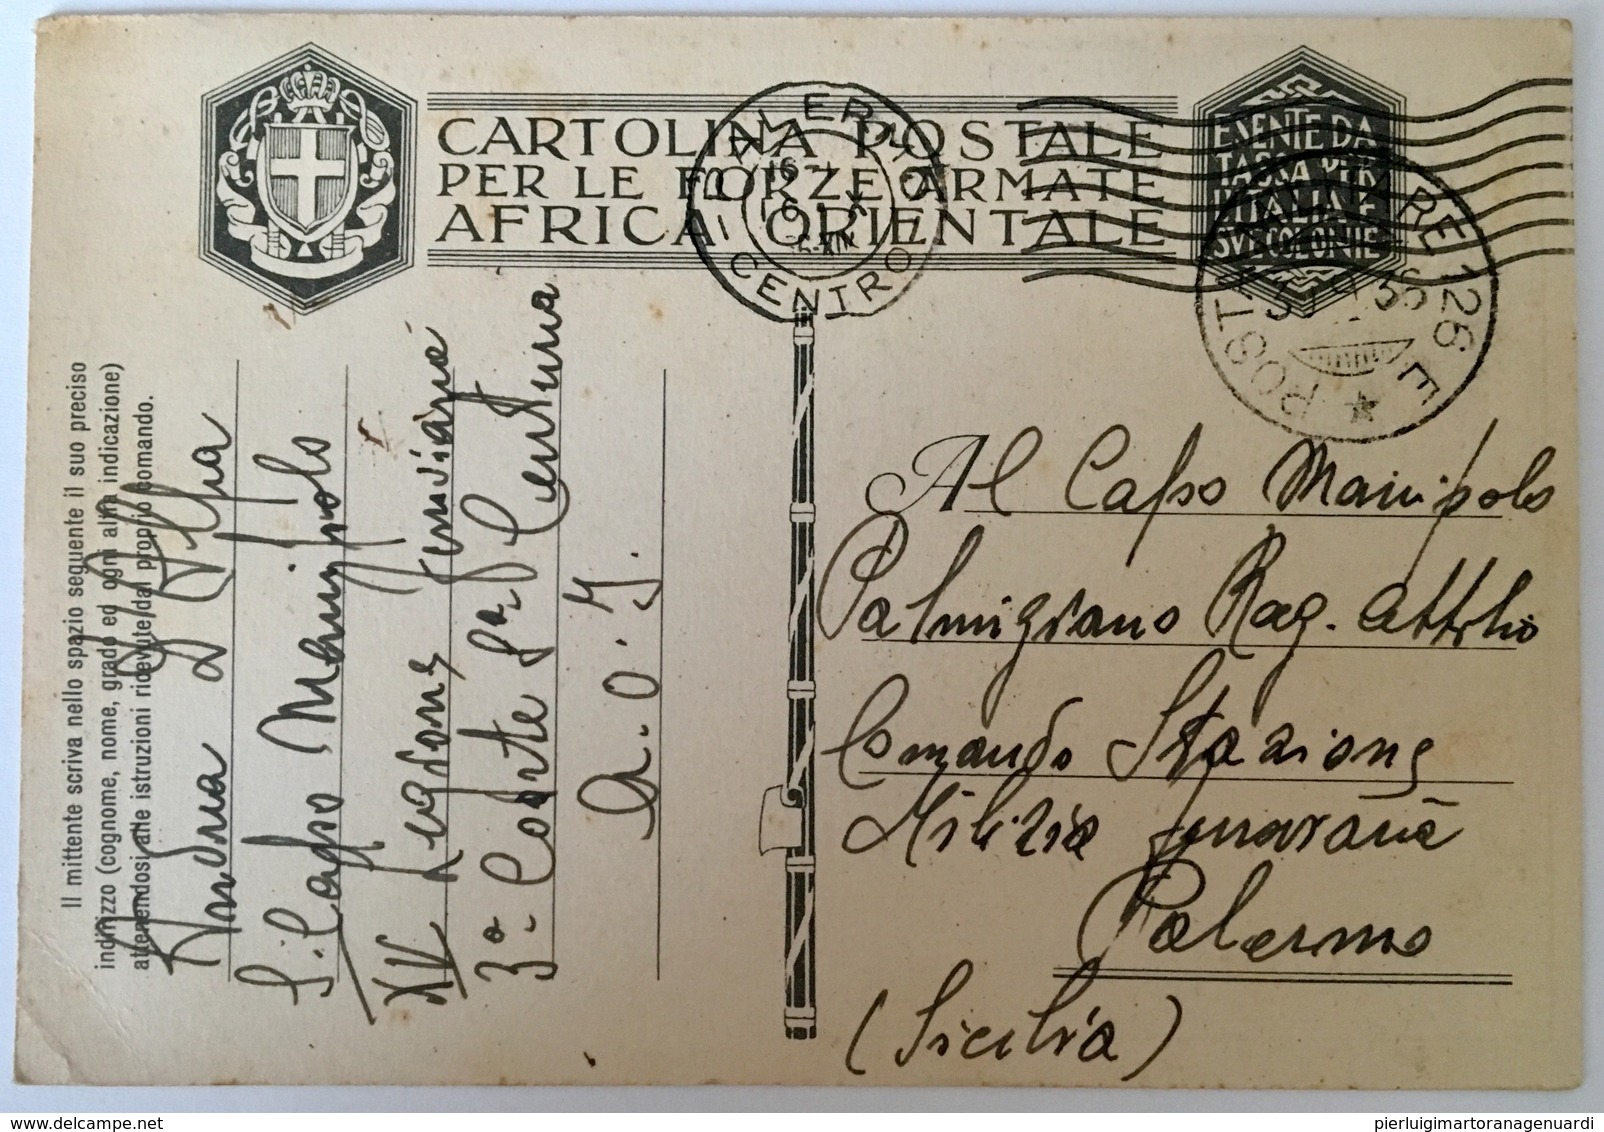 CARTOLINA POSTALE
PER LE FORZE ARMATE
AFRICA ORIENTALE
ESENTE DA
TASSA PER
L'ITALIA E
SVE COLONIE
PALERMO
CENTRO
16
POSTA MILITARE 126 E
Il mittente scriva nello spazio seguente il suo preciso
indirizzo (cognome, nome, grado ed ogni altra indicazione)
attenendosi alle istruzioni ricevute dal proprio comando.
S. Capo Manipolo
XV Legione
3ª Coorte Iª Centuria
A. O. I.
Al Capo Manipolo
Palmigiano Rag. Attilio
Comando Stazione
Milizia
Palermo
(Sicilia)
www.delcampe.net
pierluigimartoranagenuardi